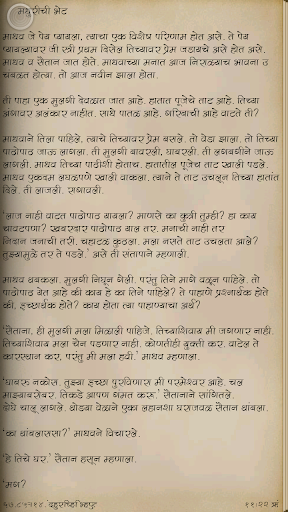 मधुरीची भेट
माधव जे पेय प्यायला, त्याचा एक विशेष परिणाम होत असे. ते पेय
प्यायल्यावर जी स्त्री प्रथम दिसेल तिच्यावर प्रेम जडायचे असे होत असे.
माधव व सैतान जात होते. माधवाच्या मनात आज निराळ्याच भावना उ
चंबळत होत्या. तो आज नवीन झाला होता.
ती पाहा एक मुलगी देवळात जात आहे. हातात पूजेचे ताट आहे. तिच्या
अंगावर अलंकार नाहीत. साधे पातळ आहे. गरिबाची आहे वाटते ती?
माधवाने तिला पाहिले. त्याचे तिच्यावर प्रेम बसले. तो वेडा झाला. तो तिच्या
पाठोपाठ जाऊ लागला. ती मुलगी बावरली, घाबरली. ती लगबगीने जाऊ
लागली. माधव तिच्या पाठीशी होताच. हातातील पूजेचे ताट खाली पडले.
माधव एकदम लघळपणे खाली वाकला. त्याने ते ताट उचलून तिच्या हातांत
दिले. ती लाजली. रागावली.
'लाज नाही वाटत पाठोपाठ यायला? माणसे का कुत्री तुम्ही? हा काय
चावटपणा? खबरदार पाठोपाठ याल तर. मनाची नाही तर
निदान जनाची तरी. चहाटळ कुठला. मला नसते ताट उचलता आले?
तुझ्यामुळे तर ते पडले.' असे ती संतापाने म्हणाली.
माधव थबकला. मुलगी निघून गेली. परंतु तिने मागे वळून पाहिले. तो
पाठोपाठ येत आहे की काय हे का तिने पाहिले? ते पाहाणे प्रश्नार्थक होते
की, इच्छार्थक होते? काय होता त्या पाहाण्याचा अर्थ?
'सैताना, ही मुलगी मला मिळाली पाहिजे. तिच्याशिवाय मी जगणार नाही.
तिच्याशिवाय मला चैन पडणार नाही. कोणतीही युक्ती कर. वाटेल ते
कारस्थान कर, परंतु मी मला हवी.' माधव म्हणाला.
'घाबरू नकोस. तुझ्या इच्छा पुरविणारा मी परमेश्वर आहे. चल
माझ्याबरोबर. तिकडे आपण गंमत करू.' सैतानाने सांगितले.
दोघे चालू लागले. थोड्या वेळाने एका लहानशा घराजवळ सैतान थांबला.
'का थांबलासा?' माधवने विचारले.
'हे तिचे घर.' सैतान हसून म्हणाला.
'मग?